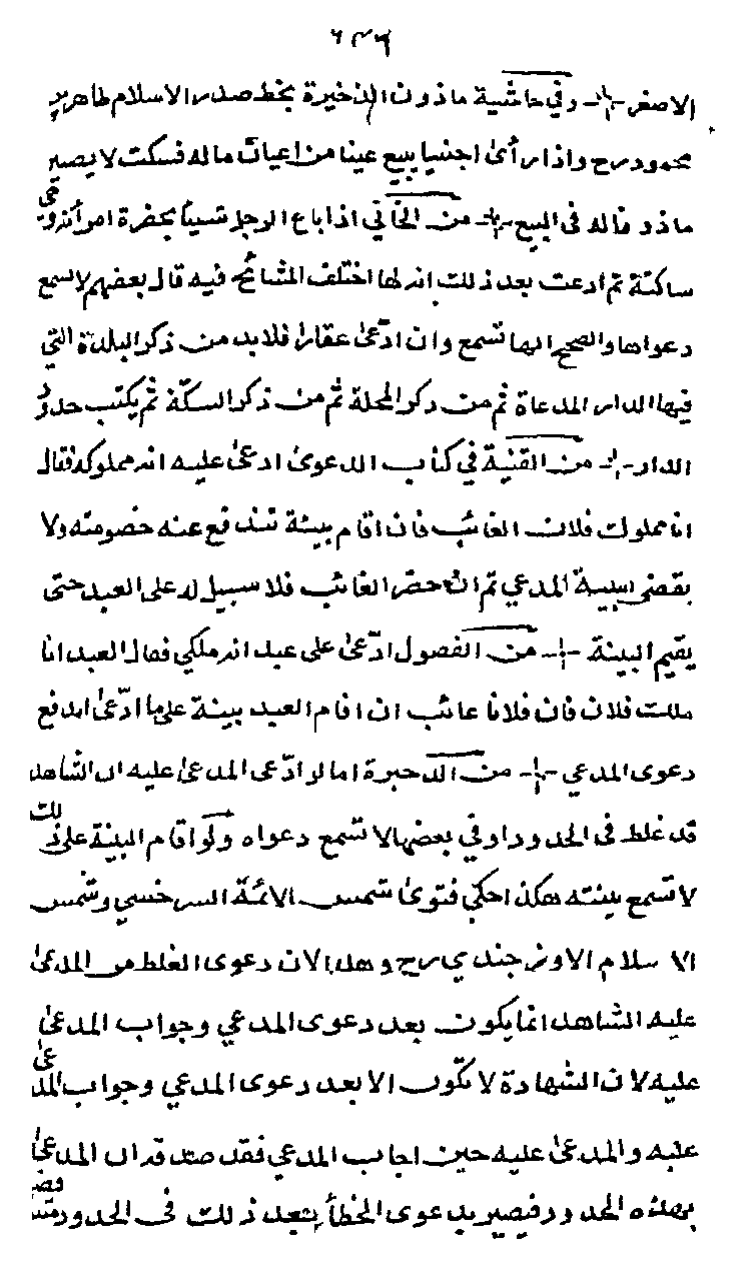 ٦٣٦
الاصغر - وفي حاشية ماذون الذخيرة بخط صدر الاسلام طاهر بن
محمود رح واذا رأى اجنبيا يبيع عينا من اعيان ماله فسكت لا يصير
ماذونا له فى البيع - من الخاني اذا باع الرجل شيئا بحضرة امرأته وهى
ساكتة ثم ادعت بعد ذلك انه لها اختلف المشائخ فيه قال بعضهم لا تسمع
دعواها والصحيح انها تسمع وان ادّعى عقارا فلا بد من ذكر البلدة التي
فيها الدار المدعاة ثم من ذكر المحلة ثم من ذكر السكّة ثم يكتب حدود
الدار - من القنية في كتاب الدعوى ادعى عليه انه مملوكه فقال
انا مملوك فلان الغائب فان اقام بينة تندفع عنه خصومته ولا
يقضى ببينة المدعي ثم ان حضر الغائب فلا سبيل له على العبد حتى
يقيم البينة - من الفصول ادّعى على عبد انه ملكي فقال العبد انا
ملك فلان فان فلانا غائب ان اقام العبد بينة على ما ادّعى اندفع
دعوى المدعي - من الذخيرة اما لو ادّعى المدعى عليه ان الشاهد
قد غلط فى الحدود او في بعضها لا تسمع دعواه ولو اقام البينة على ذلك
لا تسمع بينته هكذا حكي فتوى شمس الائمة السرخسي وشمس
الاسلام الاوزجندي رح وهذا لان دعوى الغلط من المدعى
عليه الشاهد انما يكون بعد دعوى المدعي وجواب المدعى
عليه لان الشهادة لا تكون الا بعد دعوى المدعي وجواب المدعى
عليه والمدعى عليه حين اجاب المدعي فقد صدقه ان المدعى
بهذه الحدود فيصير بدعوى الخطأ بعد ذلك فى الحدود